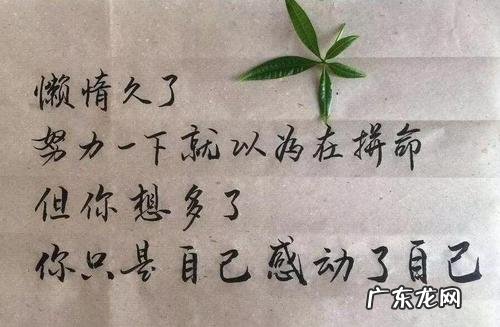 懒惰久了
努力一下就以为在拼命
但你想多了
你只是自己感动了自己
广东龙网